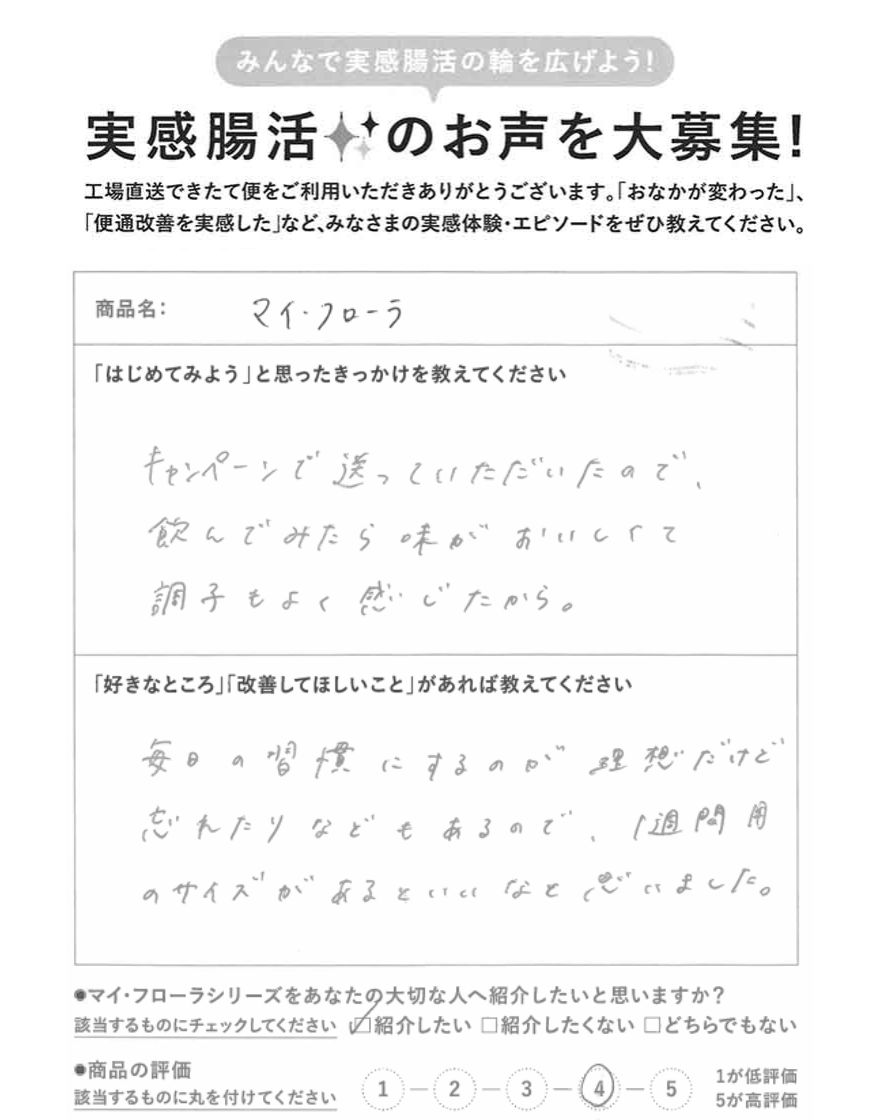 みんなで実感腸活の輪を広げよう!
実感腸活のお声を大募集!
工場直送できたて便をご利用いただきありがとうございます。「おなかが変わった」、
「便通改善を実感した」など、みなさまの実感体験・エピソードをぜひ教えてください。
商品名: マイ・フローラ
「はじめてみよう」と思ったきっかけを教えてください
キャンペーンで送っていただいたので、
飲んでみたら味がおいしくて
調子もよく感じたから。
「好きなところ」「改善してほしいこと」があれば教えてください
毎日の習慣にするのが理想だけど
忘れたりなどもあるので、1週間用
のサイズがあるといいなと思いました。
●マイ・フローラシリーズをあなたの大切な人へ紹介したいと思いますか?
該当するものにチェックしてください ☑紹介したい □紹介したくない □どちらでもない
●商品の評価
該当するものに丸を付けてください 1 — 2 — 3 — 4 — 5
1が低評価
5が高評価